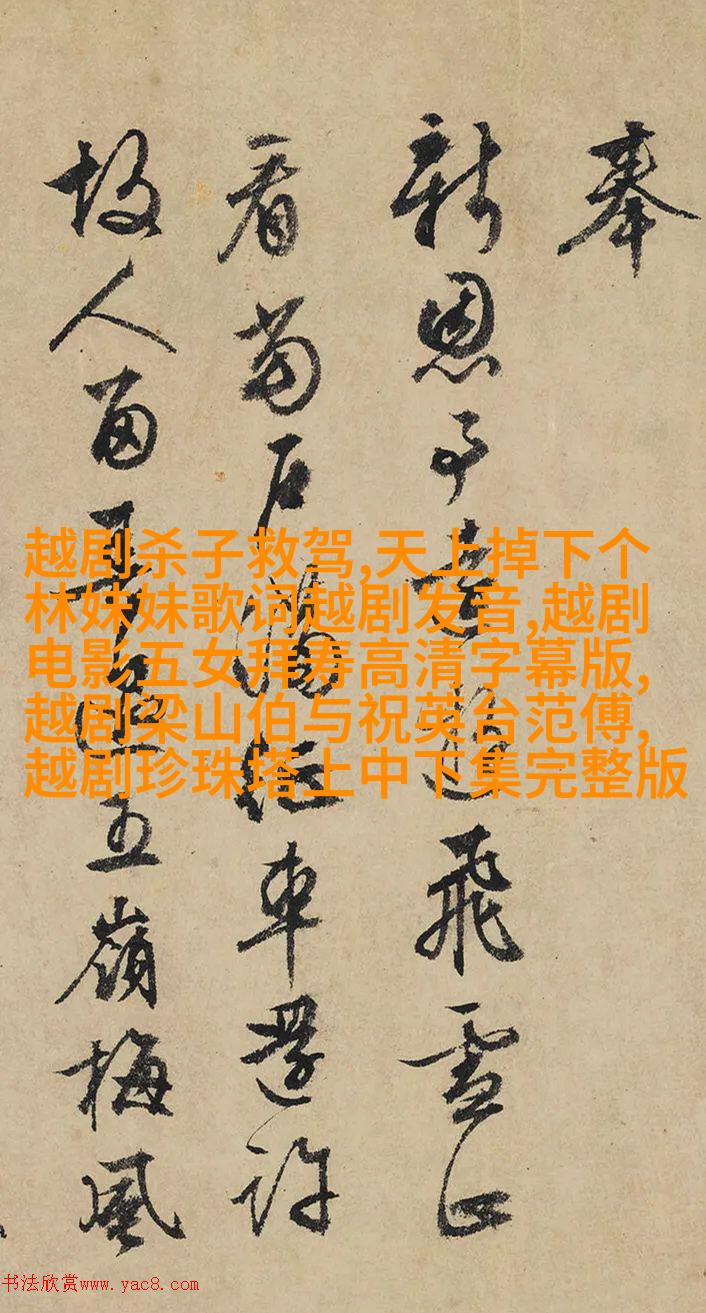 奉
新恩遠飛雪正
看車還許
故人五嶺梅風
越剧杀子救驾,天上掉下个
林妹妹歌词越剧发音,越剧
电影五女拜寿高清字幕版,
越剧梁山伯与祝英台范傅,
越剧珍珠塔上中下集完整版
书法欣赏www.yac8.com